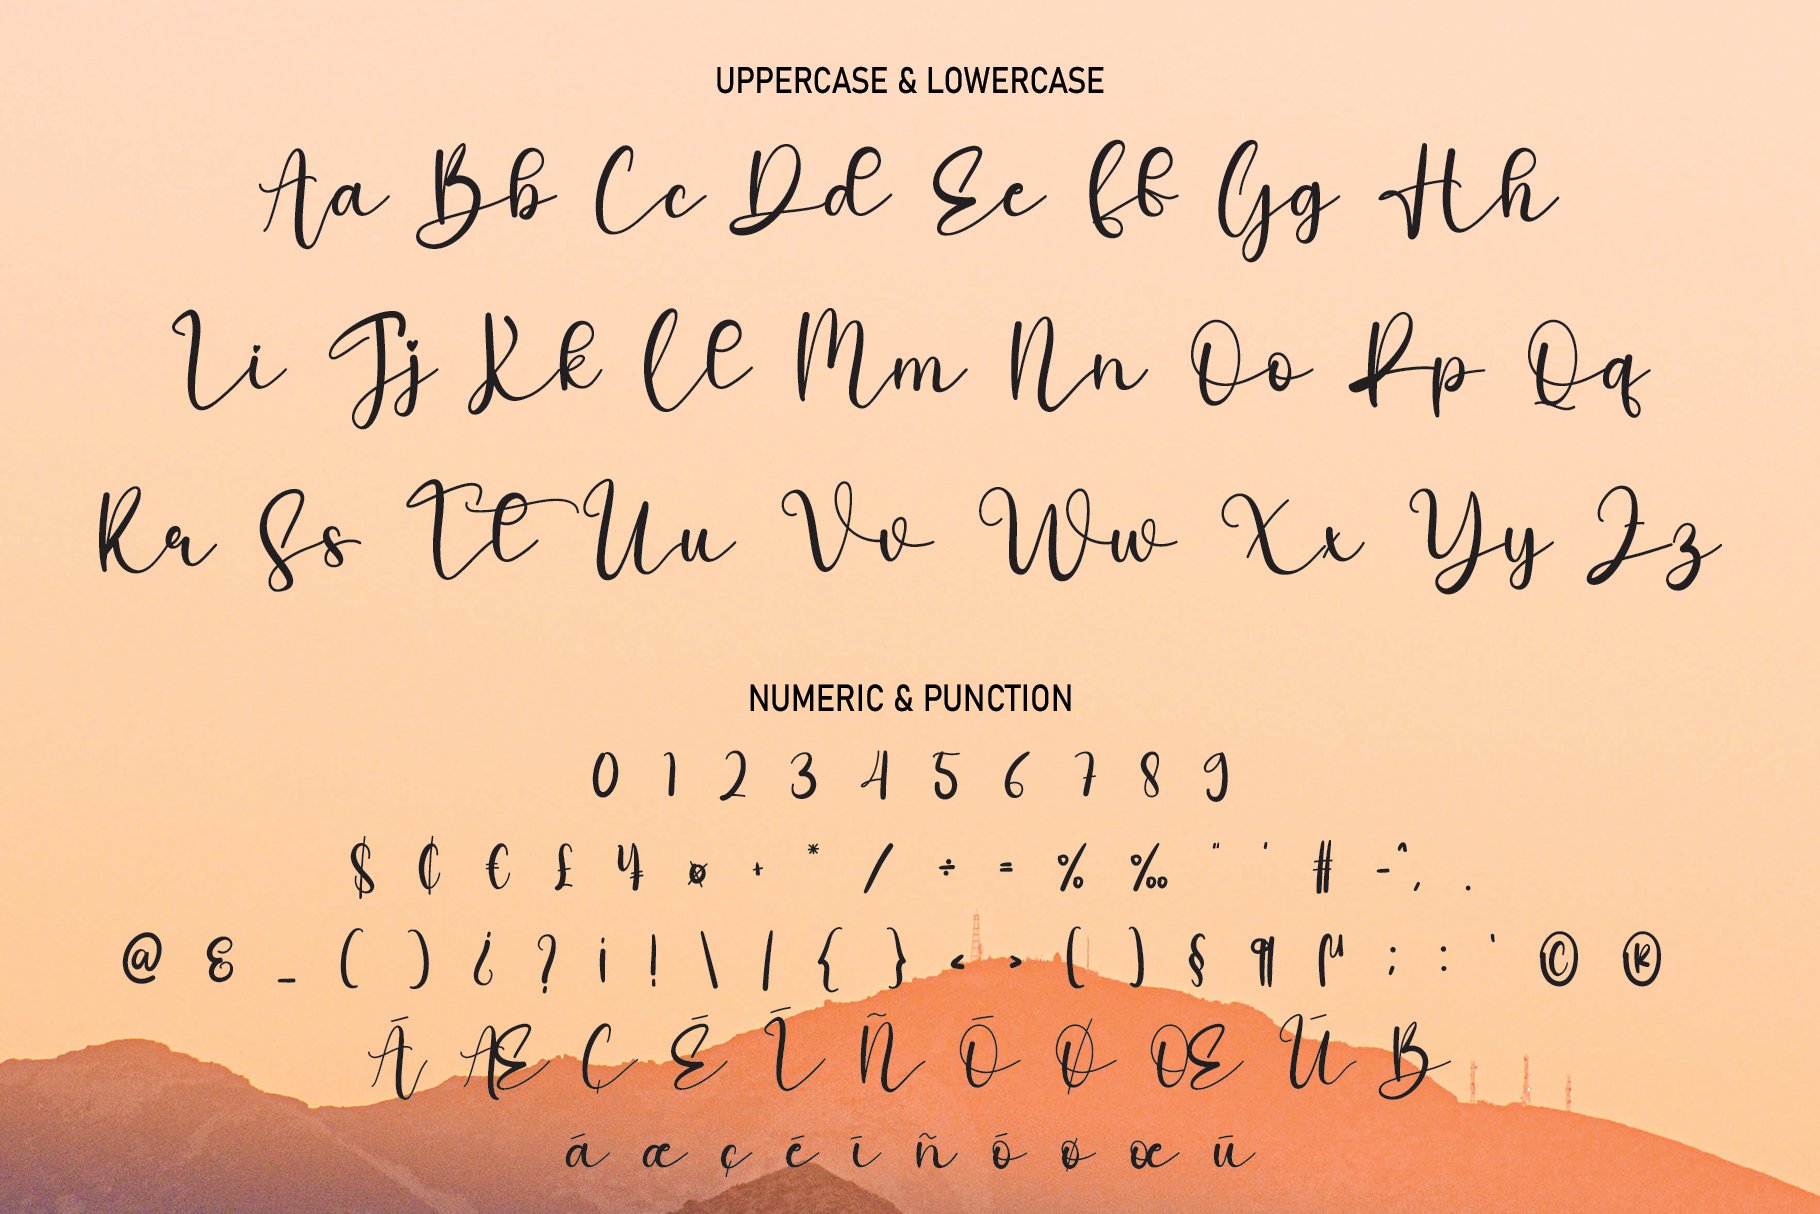 UPPERCASE & LOWERCASE
Aa Bb Cc Dd Ee Ff Gg Hh
Ii Jj Kk Ll Mm Nn Oo Pp Qq
Rr Ss Tt Uu Vv Ww Xx Yy Zz
NUMERIC & PUNCTION
0 1 2 3 4 5 6 7 8 9
$ ¢ € £ ¥ ¤ + * / ÷ = % ‰ " ' # - ^ , .
@ & _ ( ) ¿ ? ¡ ! \ | { } < > ( ) § ¶ µ ; : ' © ®
Ā Æ Ç Ē Ī Ñ Ō Ø Œ Ū B
á æ ç é ī ñ ó ø œ ū